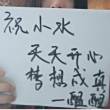 祝小水
天天开心
梦想成真
一醞醞